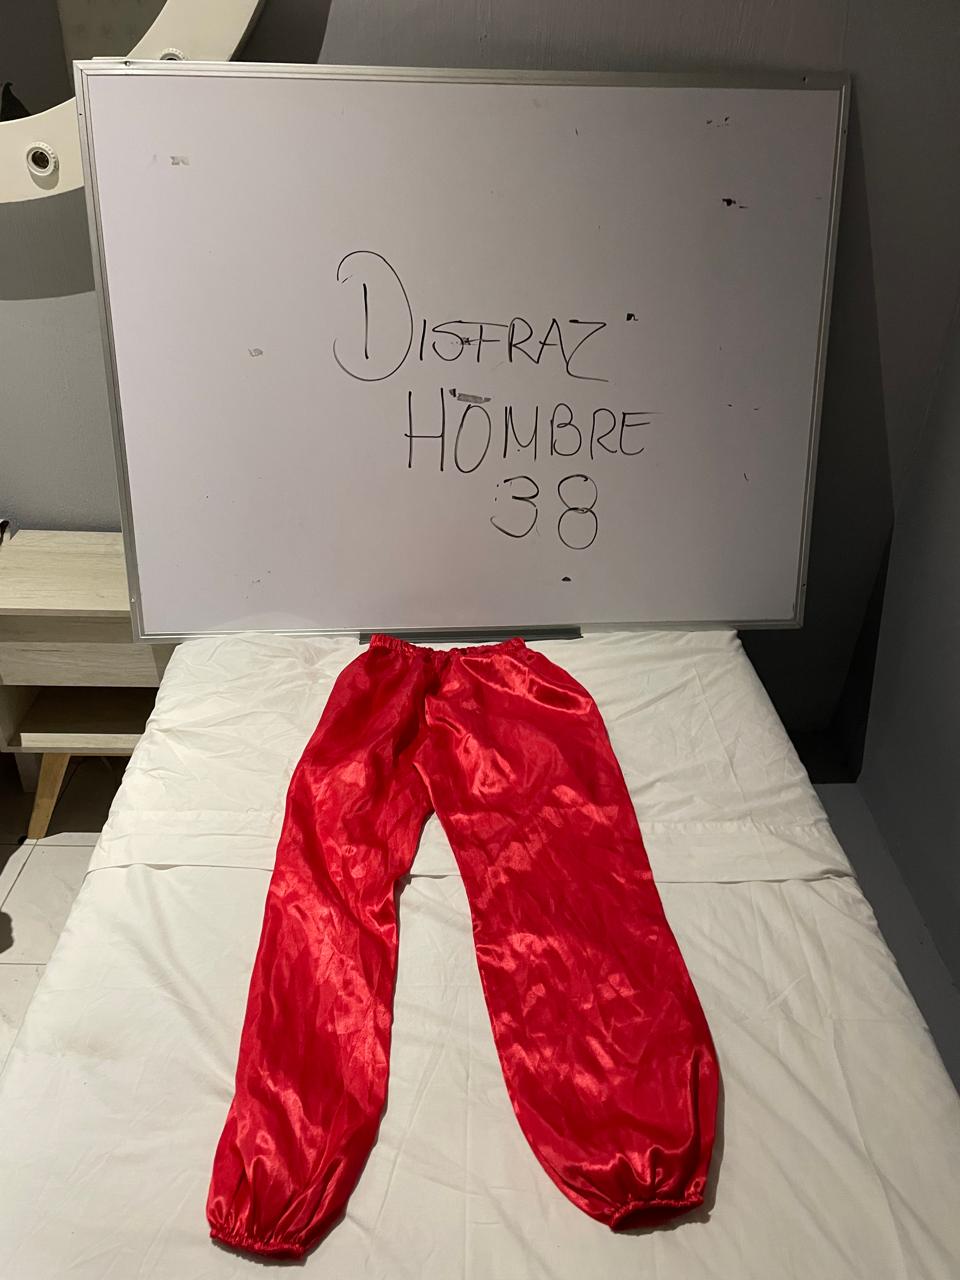 DISFRAZ
HOMBRE
38